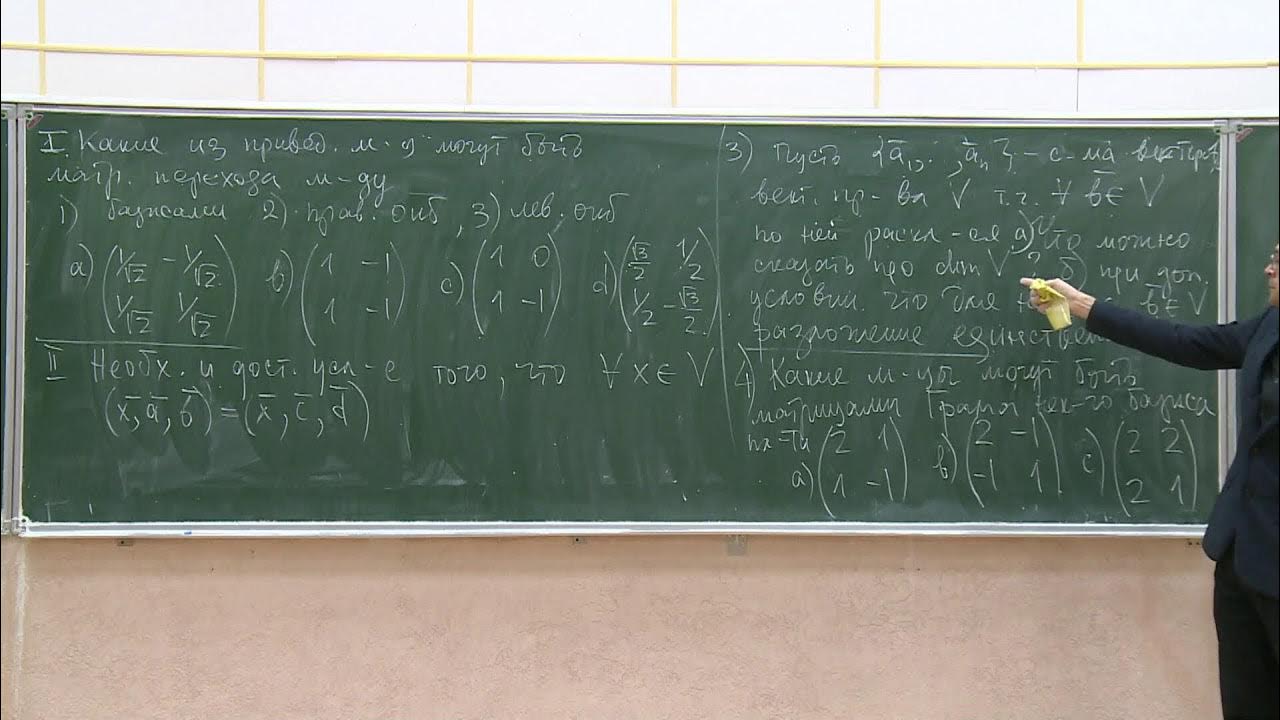 I. Какие из привед. м-ц могут быть
матр. перехода м-ду
1) базисами 2) прав. онб, 3) лев. онб
a) (1/√2 -1/√2; 1/√2 1/√2) b) (1 -1; 1 -1) c) (1 0; 1 -1) d) (√3/2 1/2; 1/2 -√3/2)
II Необх. и дост. усл-е того, что ∀ x ∈ V
(x̄, ā, b̄) = (x̄, c̄, d̄)
3) Пусть {ā₁, . , āₙ} – с-ма векторов
вект. пр-ва V т.ч. ∀ b̄ ∈ V
по ней раскл-ся а) что можно
сказать про dim V ? б) при доп.
условии что для b̄ ∈ V
разложение единствен
4) Какие м-цы могут быть
матрицами Грама нек-го базиса
пл-ти a) (2 1; 1 -1) b) (2 -1; -1 1) c) (2 2; 2 1)